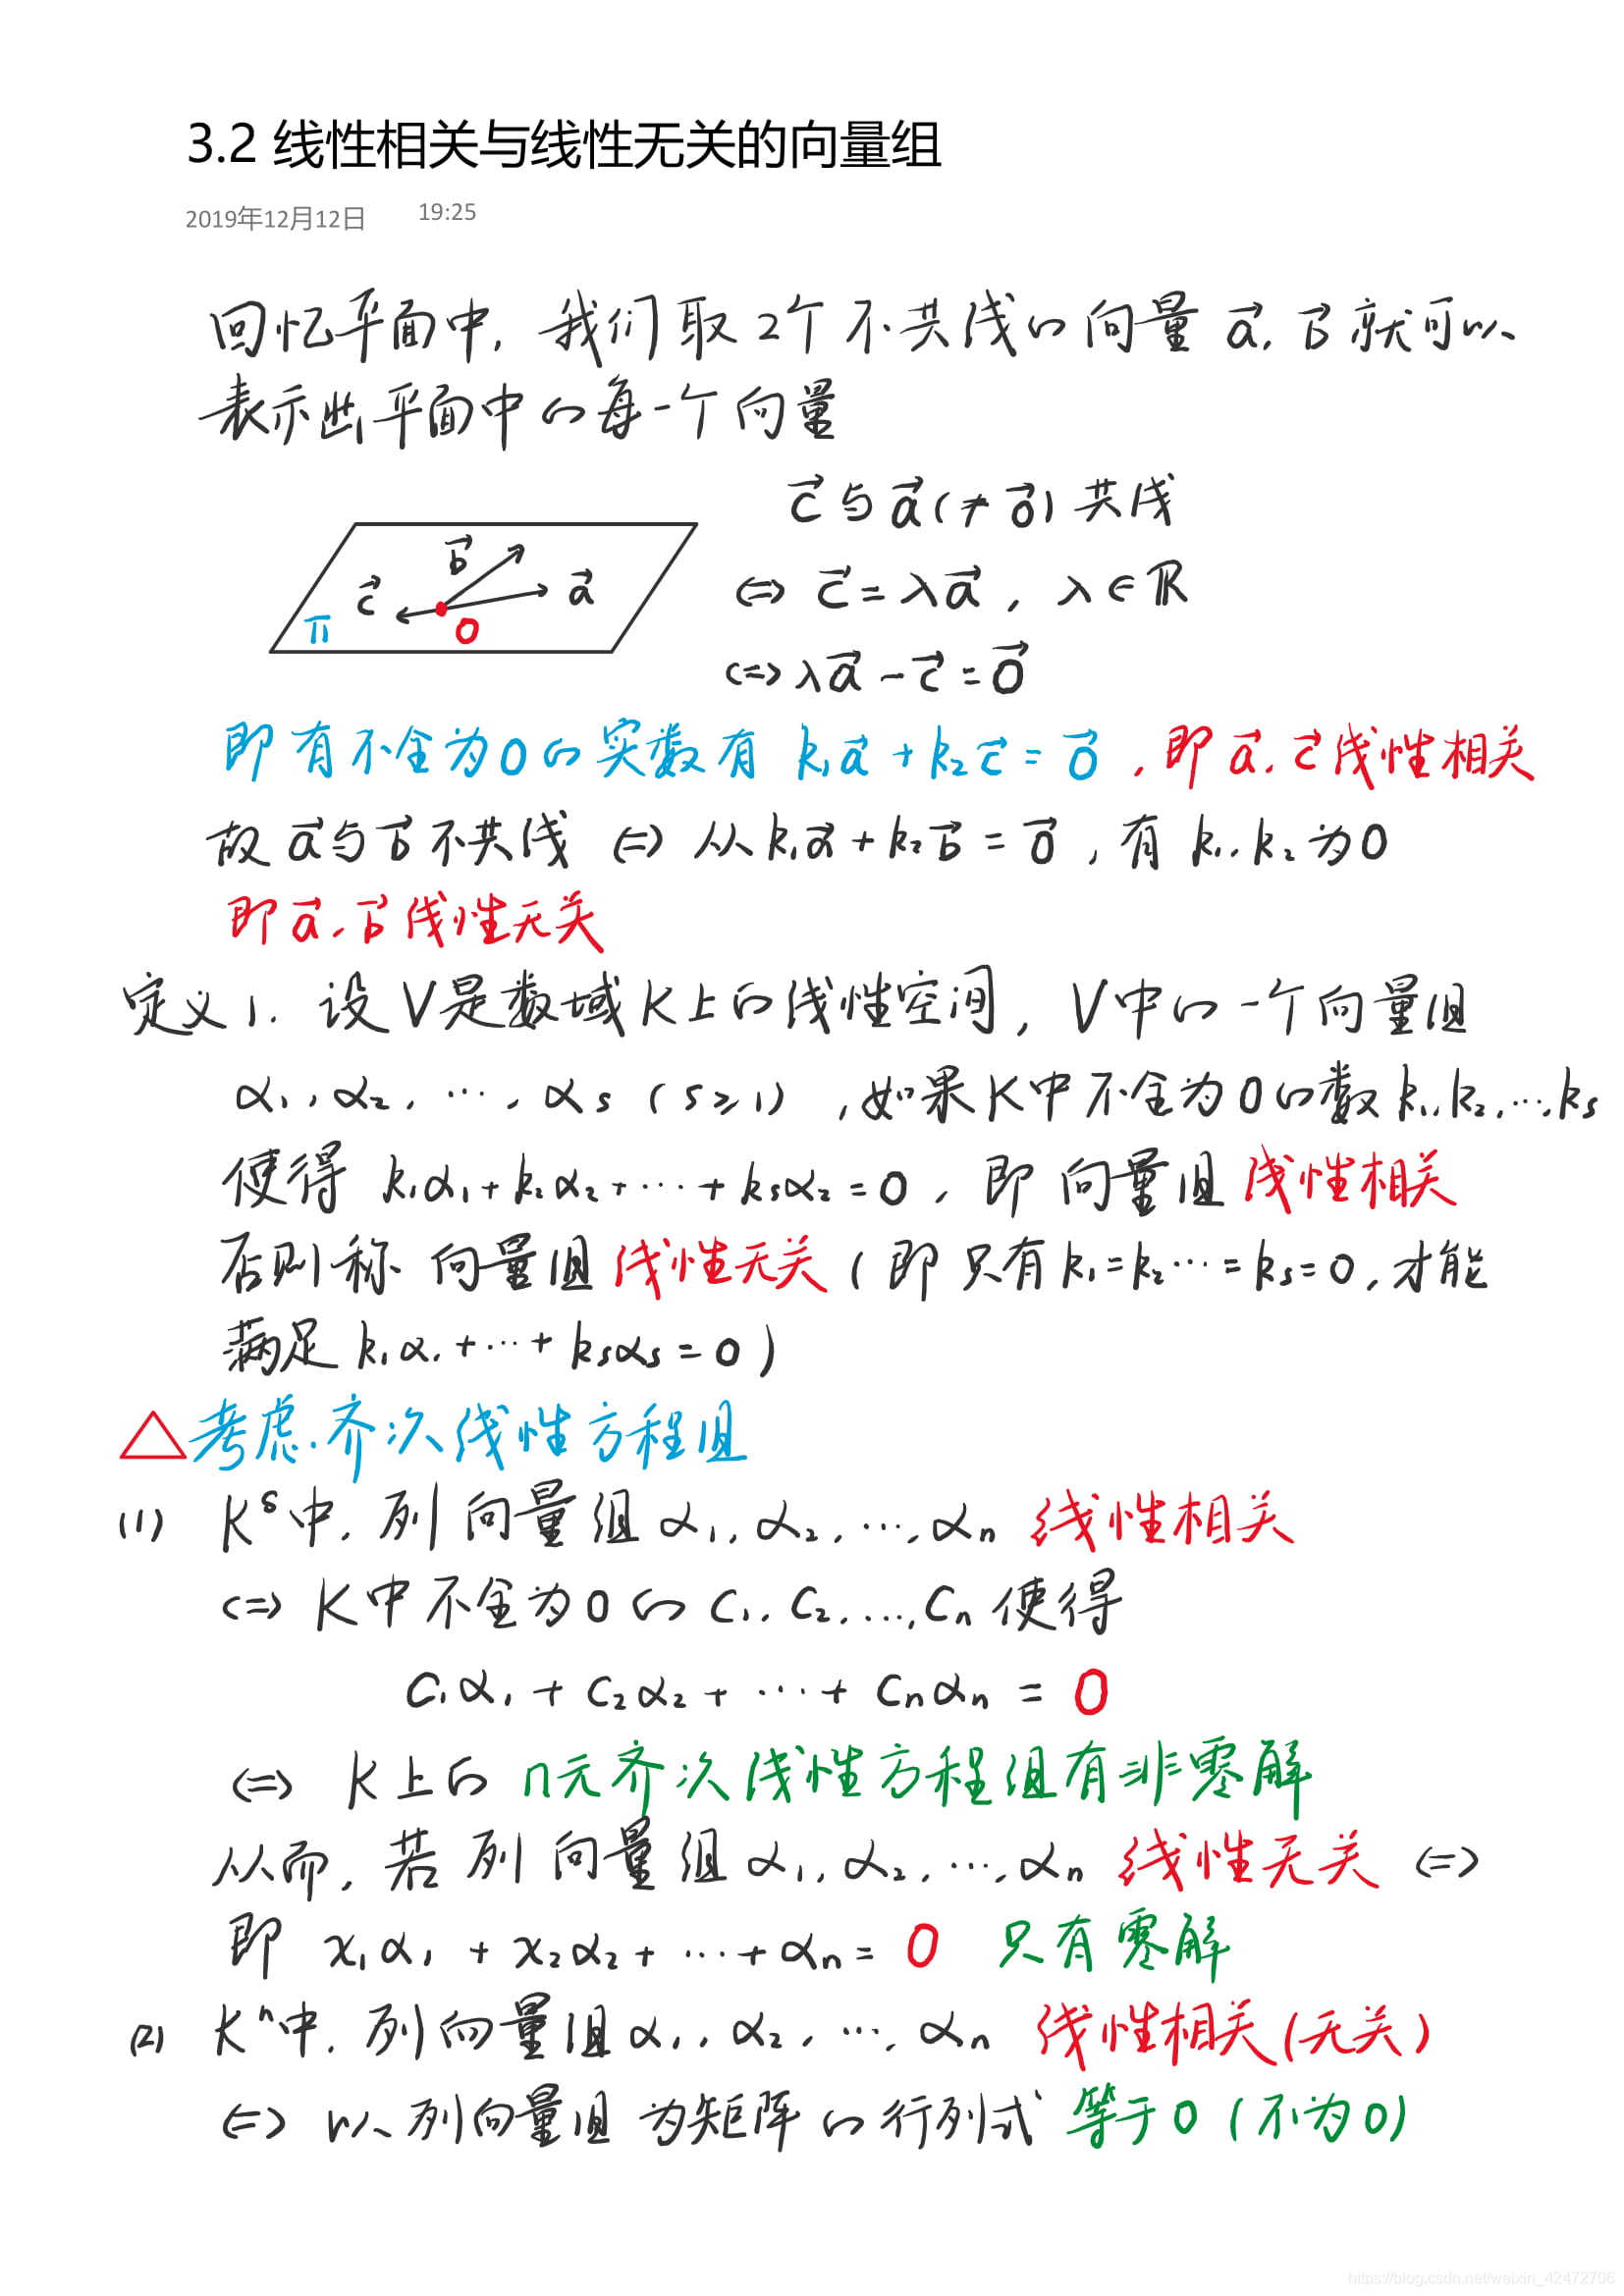 3.2 线性相关与线性无关的向量组
2019年12月12日 19:25
回忆平面中，我们取2个不共线的向量 a⃗，b⃗ 就可以
表示出平面中的每一个向量
c⃗与a⃗(≠0⃗)共线
⇔ c⃗=λa⃗，λ∈ℝ
⇔ λa⃗-c⃗=0⃗
b⃗
c⃗
a⃗
π
O
即有不全为0的实数有 k₁a⃗+k₂c⃗=0⃗，即a⃗，c⃗线性相关
故a⃗与b⃗不共线 ⇔ 从k₁a⃗+k₂b⃗=0⃗，有k₁，k₂为0
即a⃗，b⃗线性无关
定义1. 设V是数域K上的线性空间，V中的一个向量组
α₁，α₂，…，αs（s≥1），如果K中不全为0的数k₁,k₂,…,ks
使得 k₁α₁+k₂α₂+…+ksα₂=0，即向量组线性相关
否则称 向量组线性无关（即只有k₁=k₂…=ks=0，才能
满足k₁α₁+…+ksαs=0）
△考虑齐次线性方程组
(1) Kˢ中，列向量组α₁，α₂，…，αn 线性相关
⇔ K中不全为0的C₁，C₂，…，Cn使得
C₁α₁+C₂α₂+…+Cnαn=0
⇔ K上的n元齐次线性方程组有非零解
从而，若列向量组α₁，α₂，…，αn 线性无关 ⇔
即 x₁α₁+x₂α₂+…+αn=0 只有零解
(2) Kⁿ中，列向量组α₁，α₂，…，αn 线性相关(无关)
⇔ 以列向量组为矩阵的行列式等于0(不为0)
https://blog.csdn.net/weixin_42472706